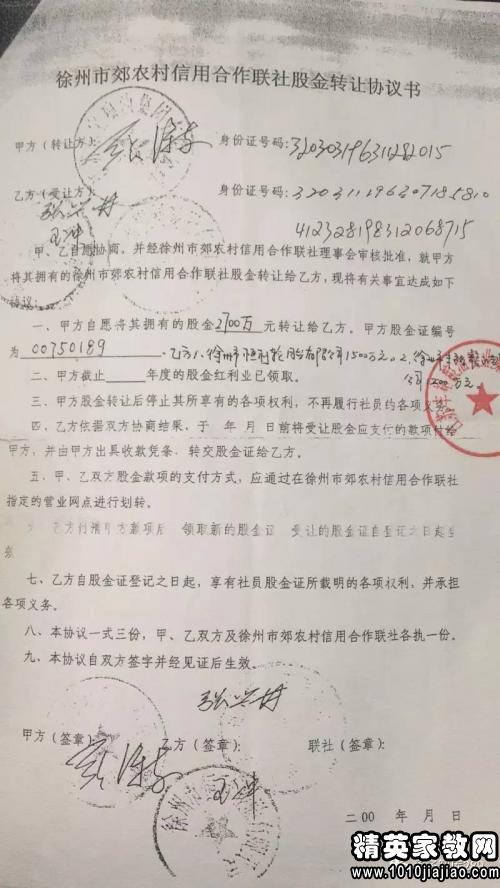 徐州市郊农村信用合作联社股金转让协议书
甲方（转让方）： 身份证号码：320303196311282015
乙方（受让方）： 身份证号码：320311196307185810
412328198312068715
甲、乙自愿协商，并经徐州市郊农村信用合作联社理事会审核批准，就甲方
将其拥有的徐州市郊农村信用合作联社股金转让给乙方，现将有关事宜达成如下
协议：
一、甲方自愿将其拥有的股金2700万元转让给乙方。甲方股金证编号
为00750189 乙方1、徐州市恒利轮胎有限公司1500万元。2、徐州市
公司1200万元。
二、甲方截止 年度的股金红利业已领取。
三、甲方股金转让后停止其所享有的各项权利，不再履行社员的各项义务。
四、乙方依据双方协商结果，于 年 月 日前将受让股金应支付的款项付给
甲方，并由甲方出具收款凭条，转交股金证给乙方。
五、甲、乙双方股金款项的支付方式，应通过在徐州市郊农村信用合作联社
指定的营业网点进行划转。
乙方付清甲方款项后 领取新的股金证 受让的股金证自登记之日起生
效
七、乙方自股金证登记之日起，享有社员股金证所载明的各项权利，并承担
各项义务。
八、本协议一式三份，甲、乙双方及徐州市郊农村信用合作联社各执一份。
九、本协议自双方签字并经见证后生效。
甲方（签章）： 乙方（签章）： 联社（签章）：
二00 年 月 日
精英家教网
www.1010jiajiao.com